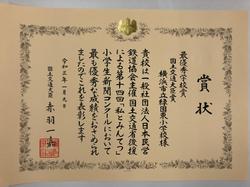 賞状
最優秀学校賞
国土交通大臣賞
横浜市立緑園東小学校様
貴校は一般社団法人日本民営
鉄道協会主催国土交通省後援
による第十四回「私とみんてつ」
小学生新聞コンクールにおいて
最も優秀な成績をおさめられ
ましたのでこれを表彰します
令和三年一月九日
国土交通大臣 赤羽一嘉